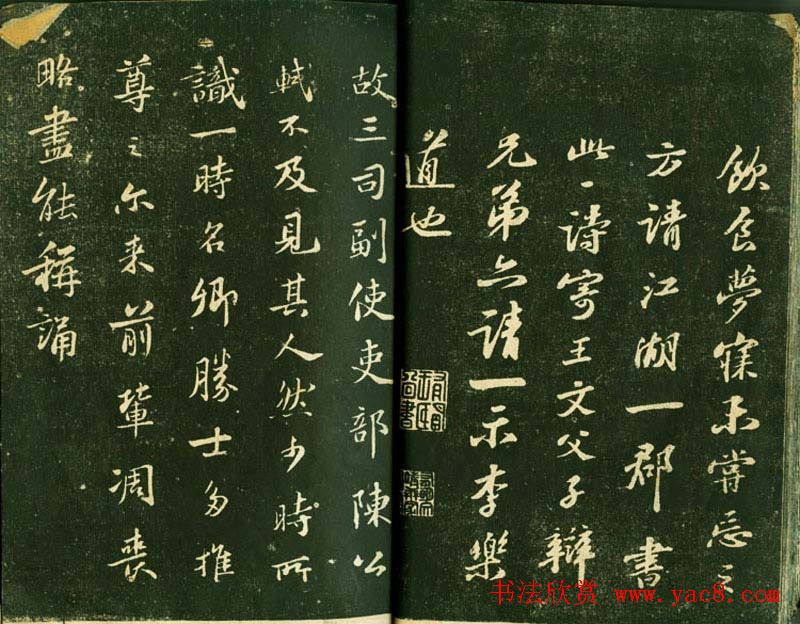 飲食夢寐未嘗忘之
方請江湖一郡書
此一詩寄王文父子辯
兄弟亦請一示李樂
道也
故三司副使吏部陳公
軾不及見其人然少時所
識一時名卿勝士多推
尊之尓来前輩凋喪
略盡能稱誦
书法欣赏 www.yac8.com